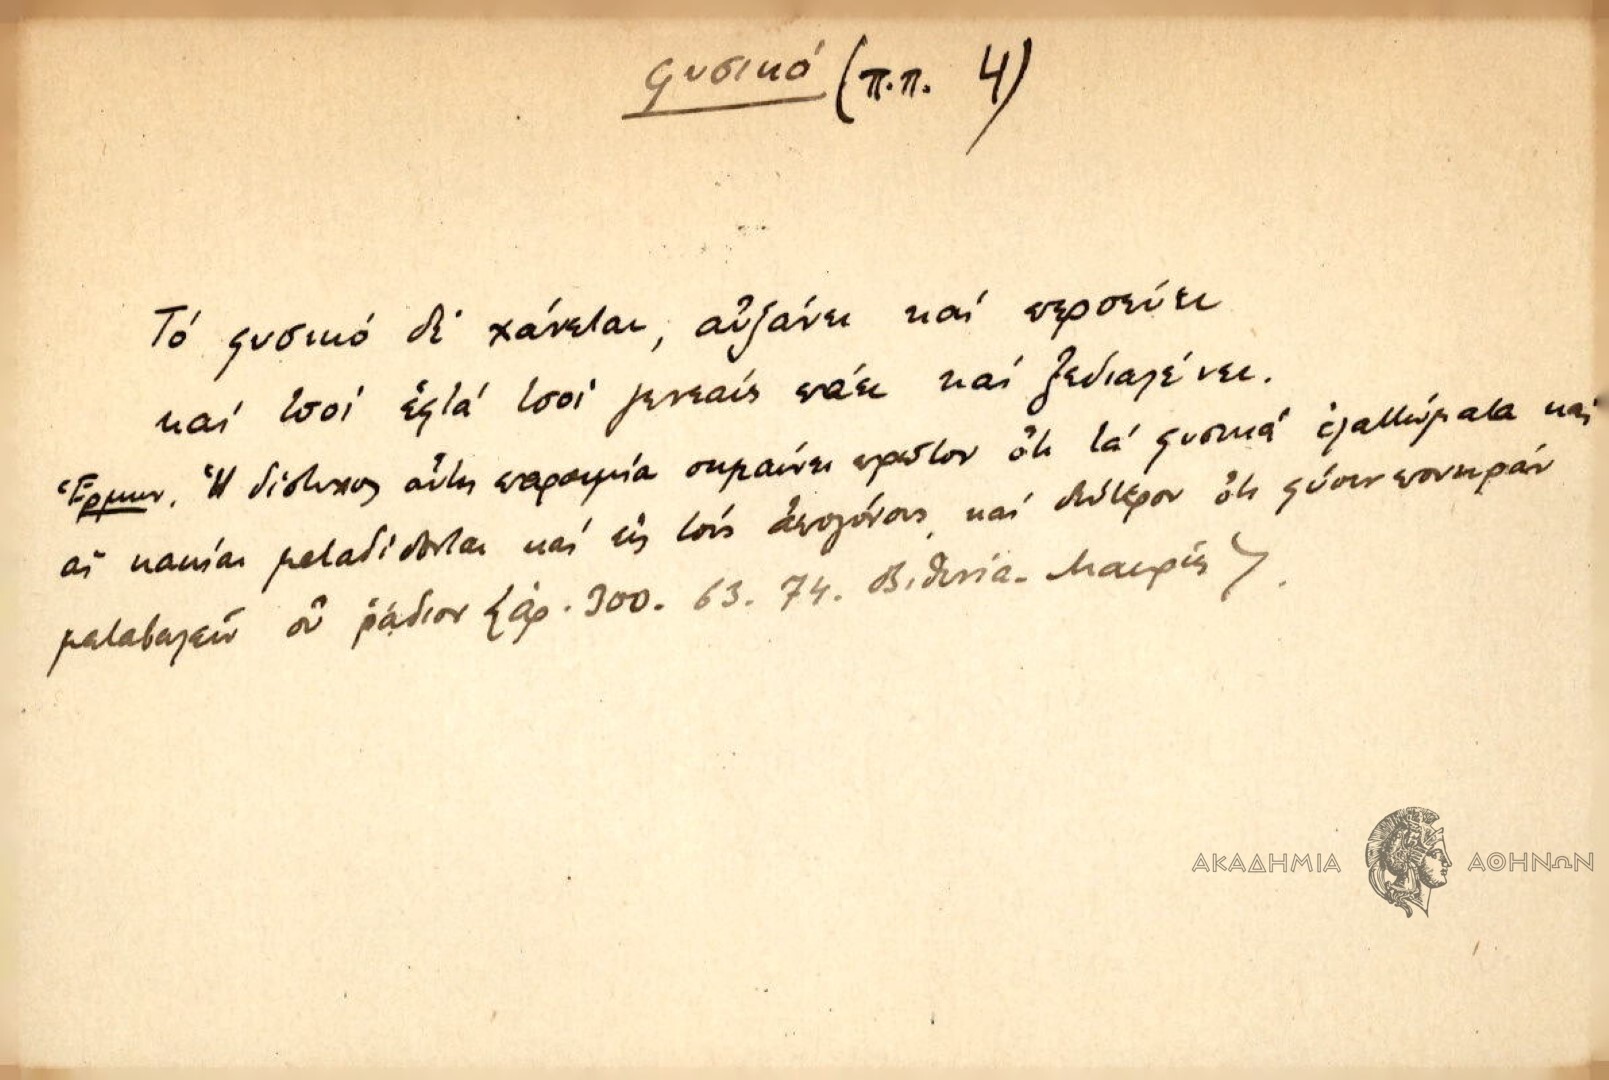 φυσικό (π.π. 4)
Τό φυσικό δέ χάνεται, αὐξάνει καί περσεύει
καί τσοί ἑφτά τσοί γενεαίς πάει καί ξεδιαλένει.
Ἑρμην. Ἡ δίστιχος αὕτη παροιμία σημαίνει πρῶτον ὅτι τά φυσικά ἐλαττώματα καί
αἱ κακίαι μεταδίδονται καί εἰς τούς ἀπογόνους, καί δεύτερον ὅτι φύσιν πονηράν
μεταβαλεῖν οὐ ῥάδιον {ἀρ. 300. 63. 74. Βιθυνία.
ΑΚΑΔΗΜΙΑ ΑΘΗΝΩΝ